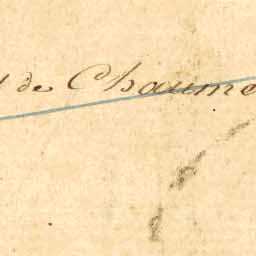 de Chaume